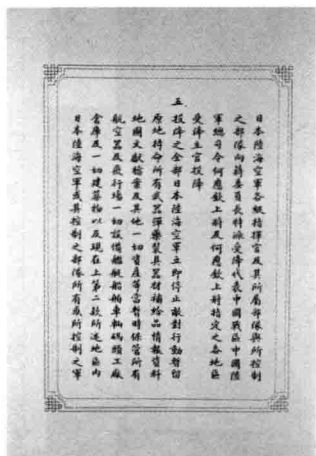 日本陸海空軍各級指揮官及其所屬部隊與所控制
之部隊向蔣委員長特派受降代表中國戰區中國陸
軍總司令何應欽上將及何應欽上將指定之各地區
受降主官投降
五、
投降之全部日本陸海空軍立即停止敵對行動暫留
原地待命所有武器彈藥裝具器材補給品情報資料
地圖文獻檔案及其他一切資產等當暫時保管所有
航空器及飛行場一切設備艦艇船舶車輛碼頭工廠
倉庫及一切建築物以及現在上第二款所述地區內
日本陸海空軍或其控制之部隊所有或所控制之軍